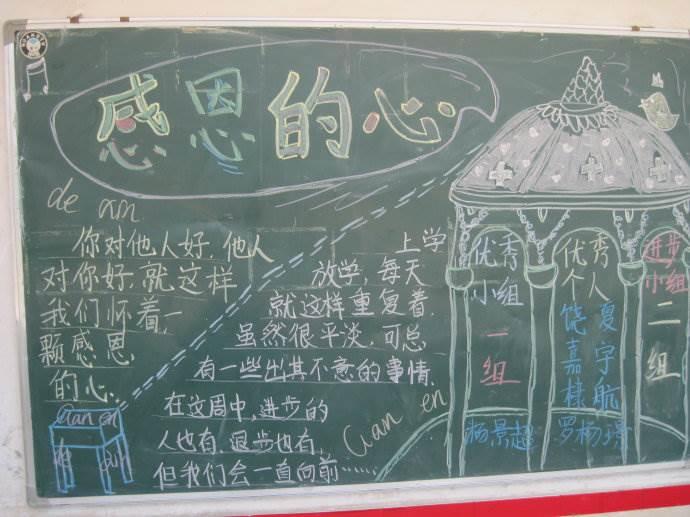 感恩的心
de an
你对他人好,他人
对你好,就这样
我们怀着一
颗感恩
的心...
上学
放学,每天
就这样重复着,
虽然很平淡,可总
有一些出其不意的事情,
在这周中,进步的
人也有,退步也有,
但我们会一直向前……
Gan en
Gan en
优秀
小组
一
组
优秀
个人
饶嘉棣
夏宇航
杨景超
罗杨
进步
小组
二
组